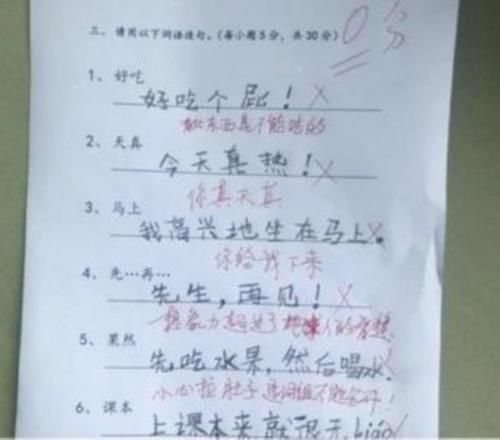 三、请用以下词语造句。(每小题5分，共30分)
0分
1、好吃
好吃个屁！
此东西是不能吃的
2、天真
今天真热！
你真天真
3、马上
我高兴地坐在马上。
你给我下来
4、先……再……
先生，再见！
想象力超过了地球人的智慧
5、果然
先吃水果，然后喝水
小心拉肚子 是词组不能分开！
6、课本
上课本来就很无liáo